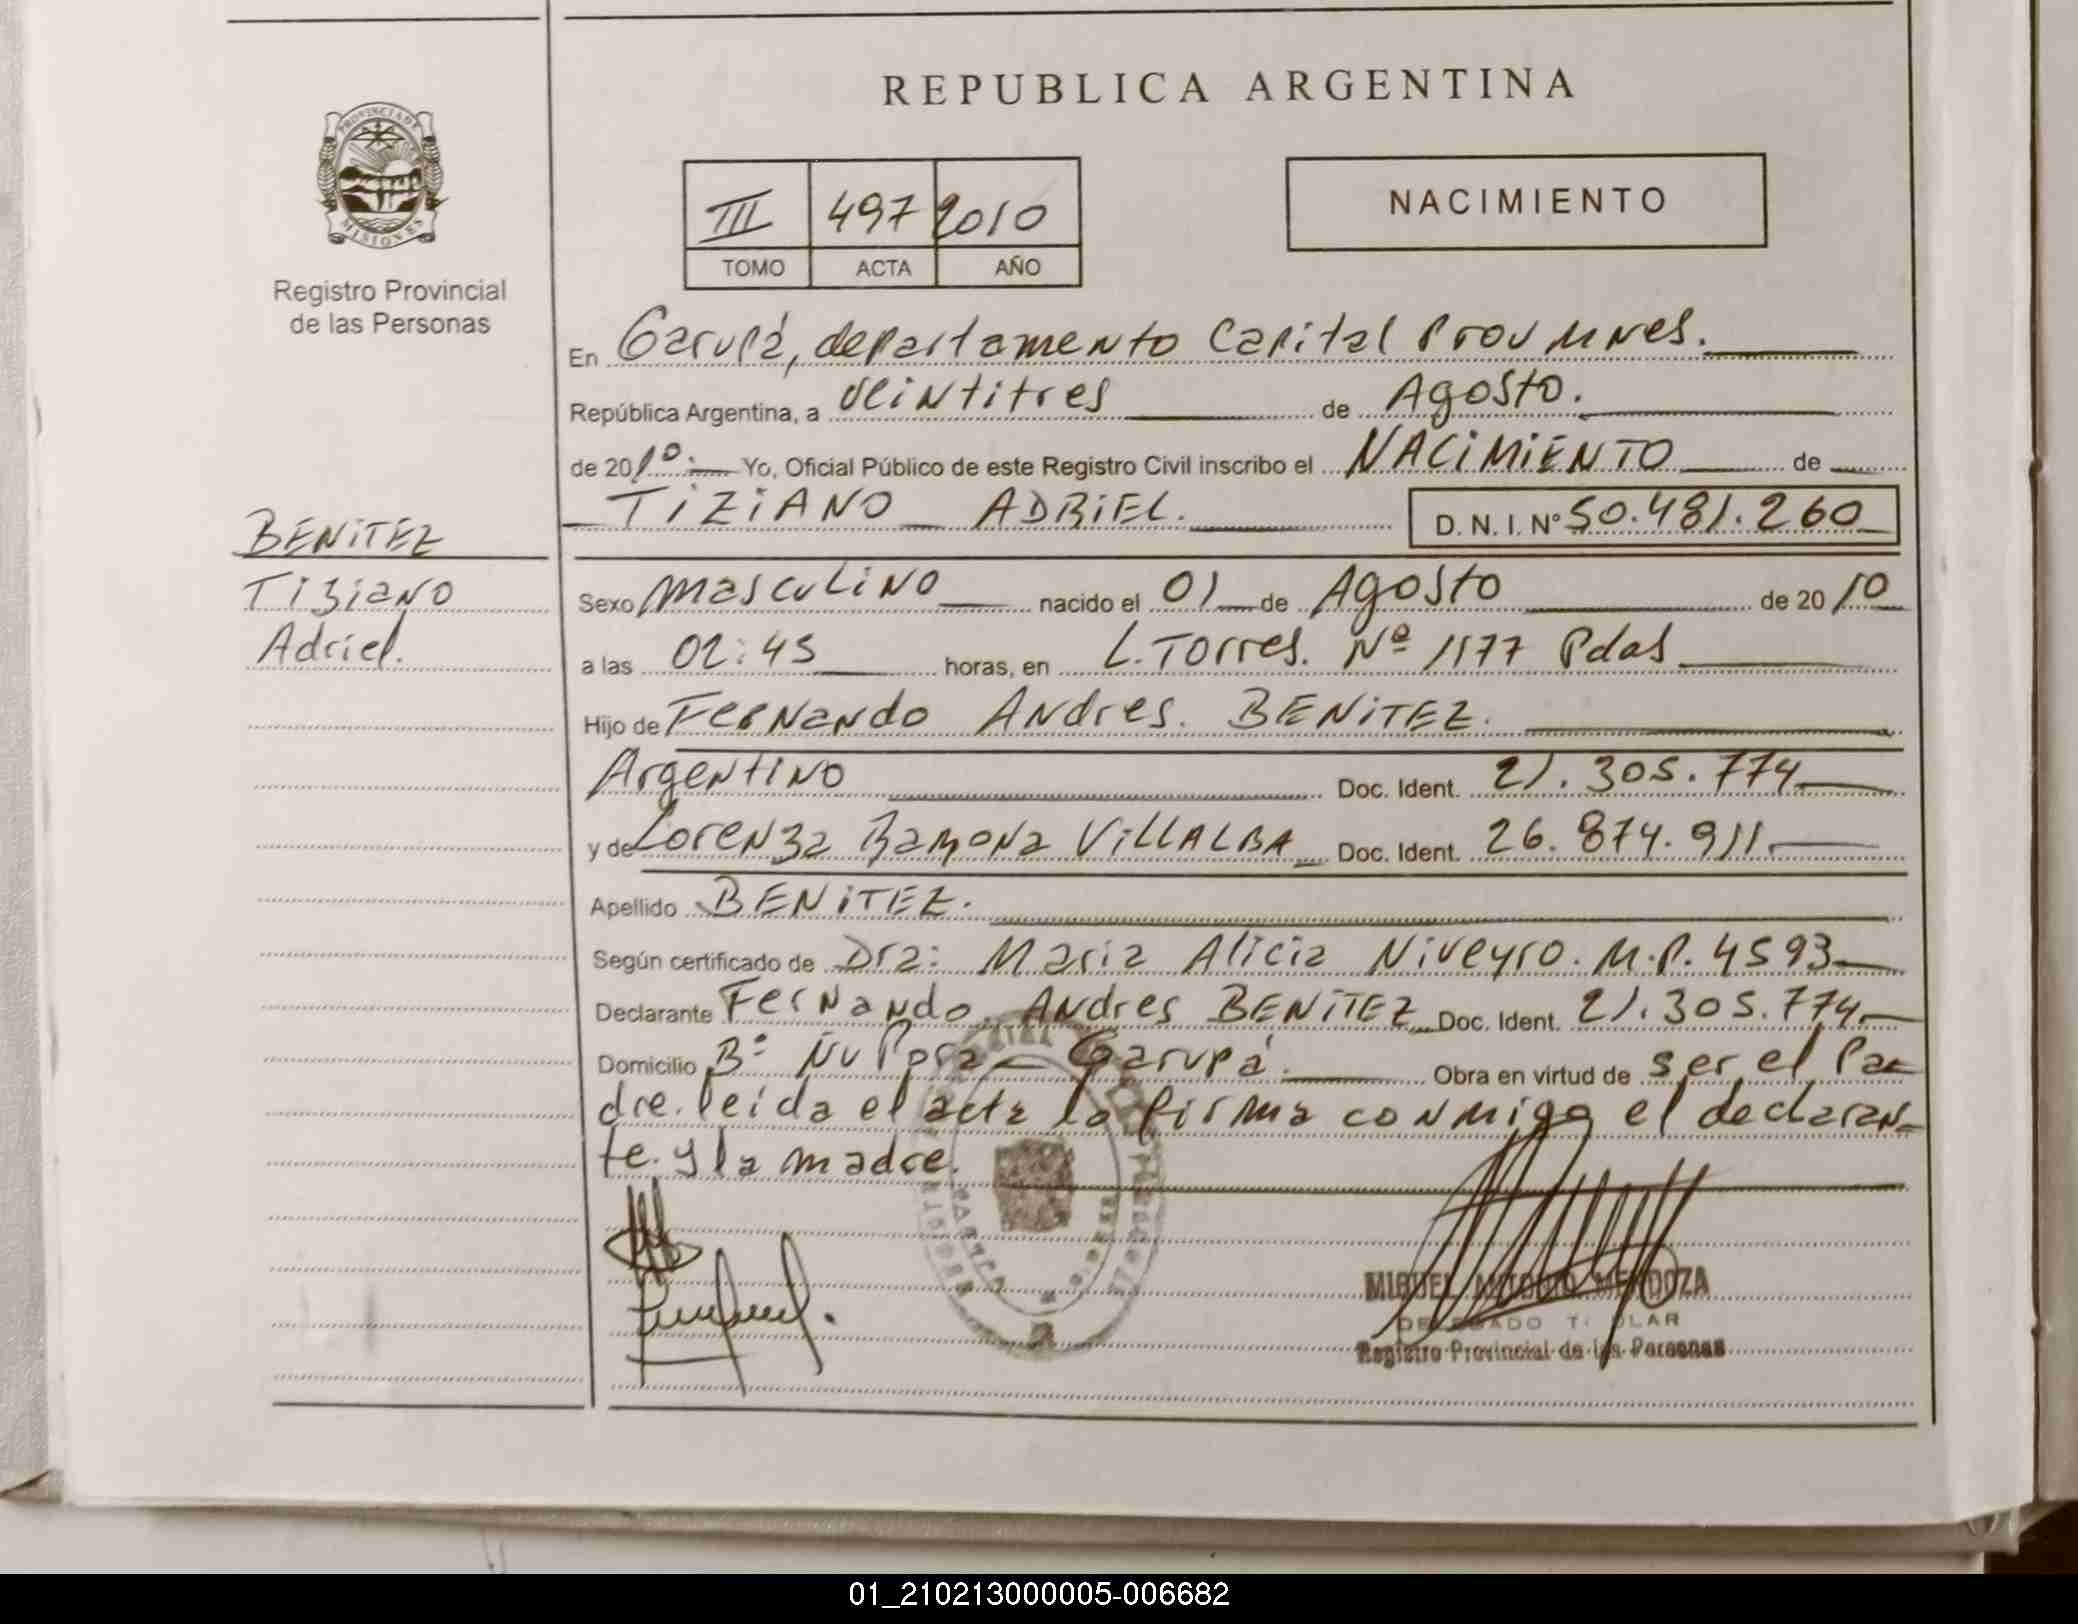 REPUBLICA ARGENTINA
PROVINCIA DE
MISIONES
Registro Provincial
de las Personas
III 497 2010
TOMO ACTA AÑO
NACIMIENTO
En Garupá, departamento Capital Prov Mnes.
República Argentina, a veintitres de Agosto.
de 2010. Yo, Oficial Público de este Registro Civil inscribo el NACIMIENTO de
TIZIANO ADRIEL. D. N. I. Nº 50.481.260
BENITEZ
Tiziano
Adriel.
Sexo masculino nacido el 01 de Agosto de 2010
a las 02:45 horas, en L. Torres. Nº 1177 Pdas
Hijo de Fernando Andres. BENITEZ.
Argentino Doc. Ident. 21.305.774
y de Lorenza Ramona VILLALBA Doc. Ident. 26.874.911.
Apellido BENITEZ.
Según certificado de Dra: Maria Alicia Niveyro. M.P. 4593
Declarante Fernando Andres BENITEZ Doc. Ident. 21.305.774
Domicilio Bº Ñu Pora - Garupá. Obra en virtud de ser el Pa-
dre. leida el acta la firma conmigo el declaran-
te. y la madre.
MIGUEL ANTONIO MENDOZA
DELEGADO TITULAR
Registro Provincial de las Personas
01_210213000005-006682